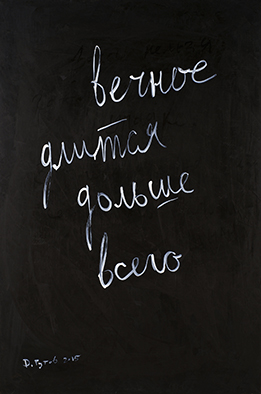 вечное
длится
дольше
всего
Д. Гутов 2015